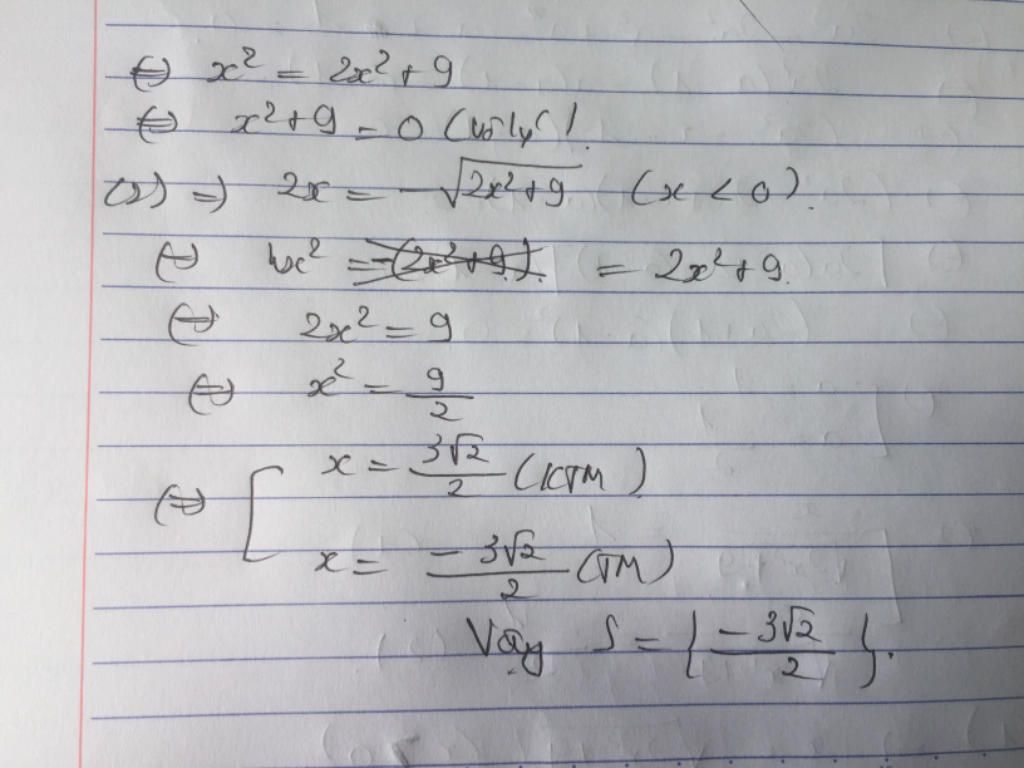 ⇔ x² = 2x² + 9
⇔ x² + 9 = 0 (vô lý)
(2) ⇒ 2x = -√(2x² + 9) (x < 0).
⇔ 4x² = -(2x² + 9) = 2x² + 9.
⇔ 2x² = 9
⇔ x² = 9/2
⇔ [ x = 3√2/2 (KTM)
x = -3√2/2 (TM)
Vậy S = { -3√2/2 }.